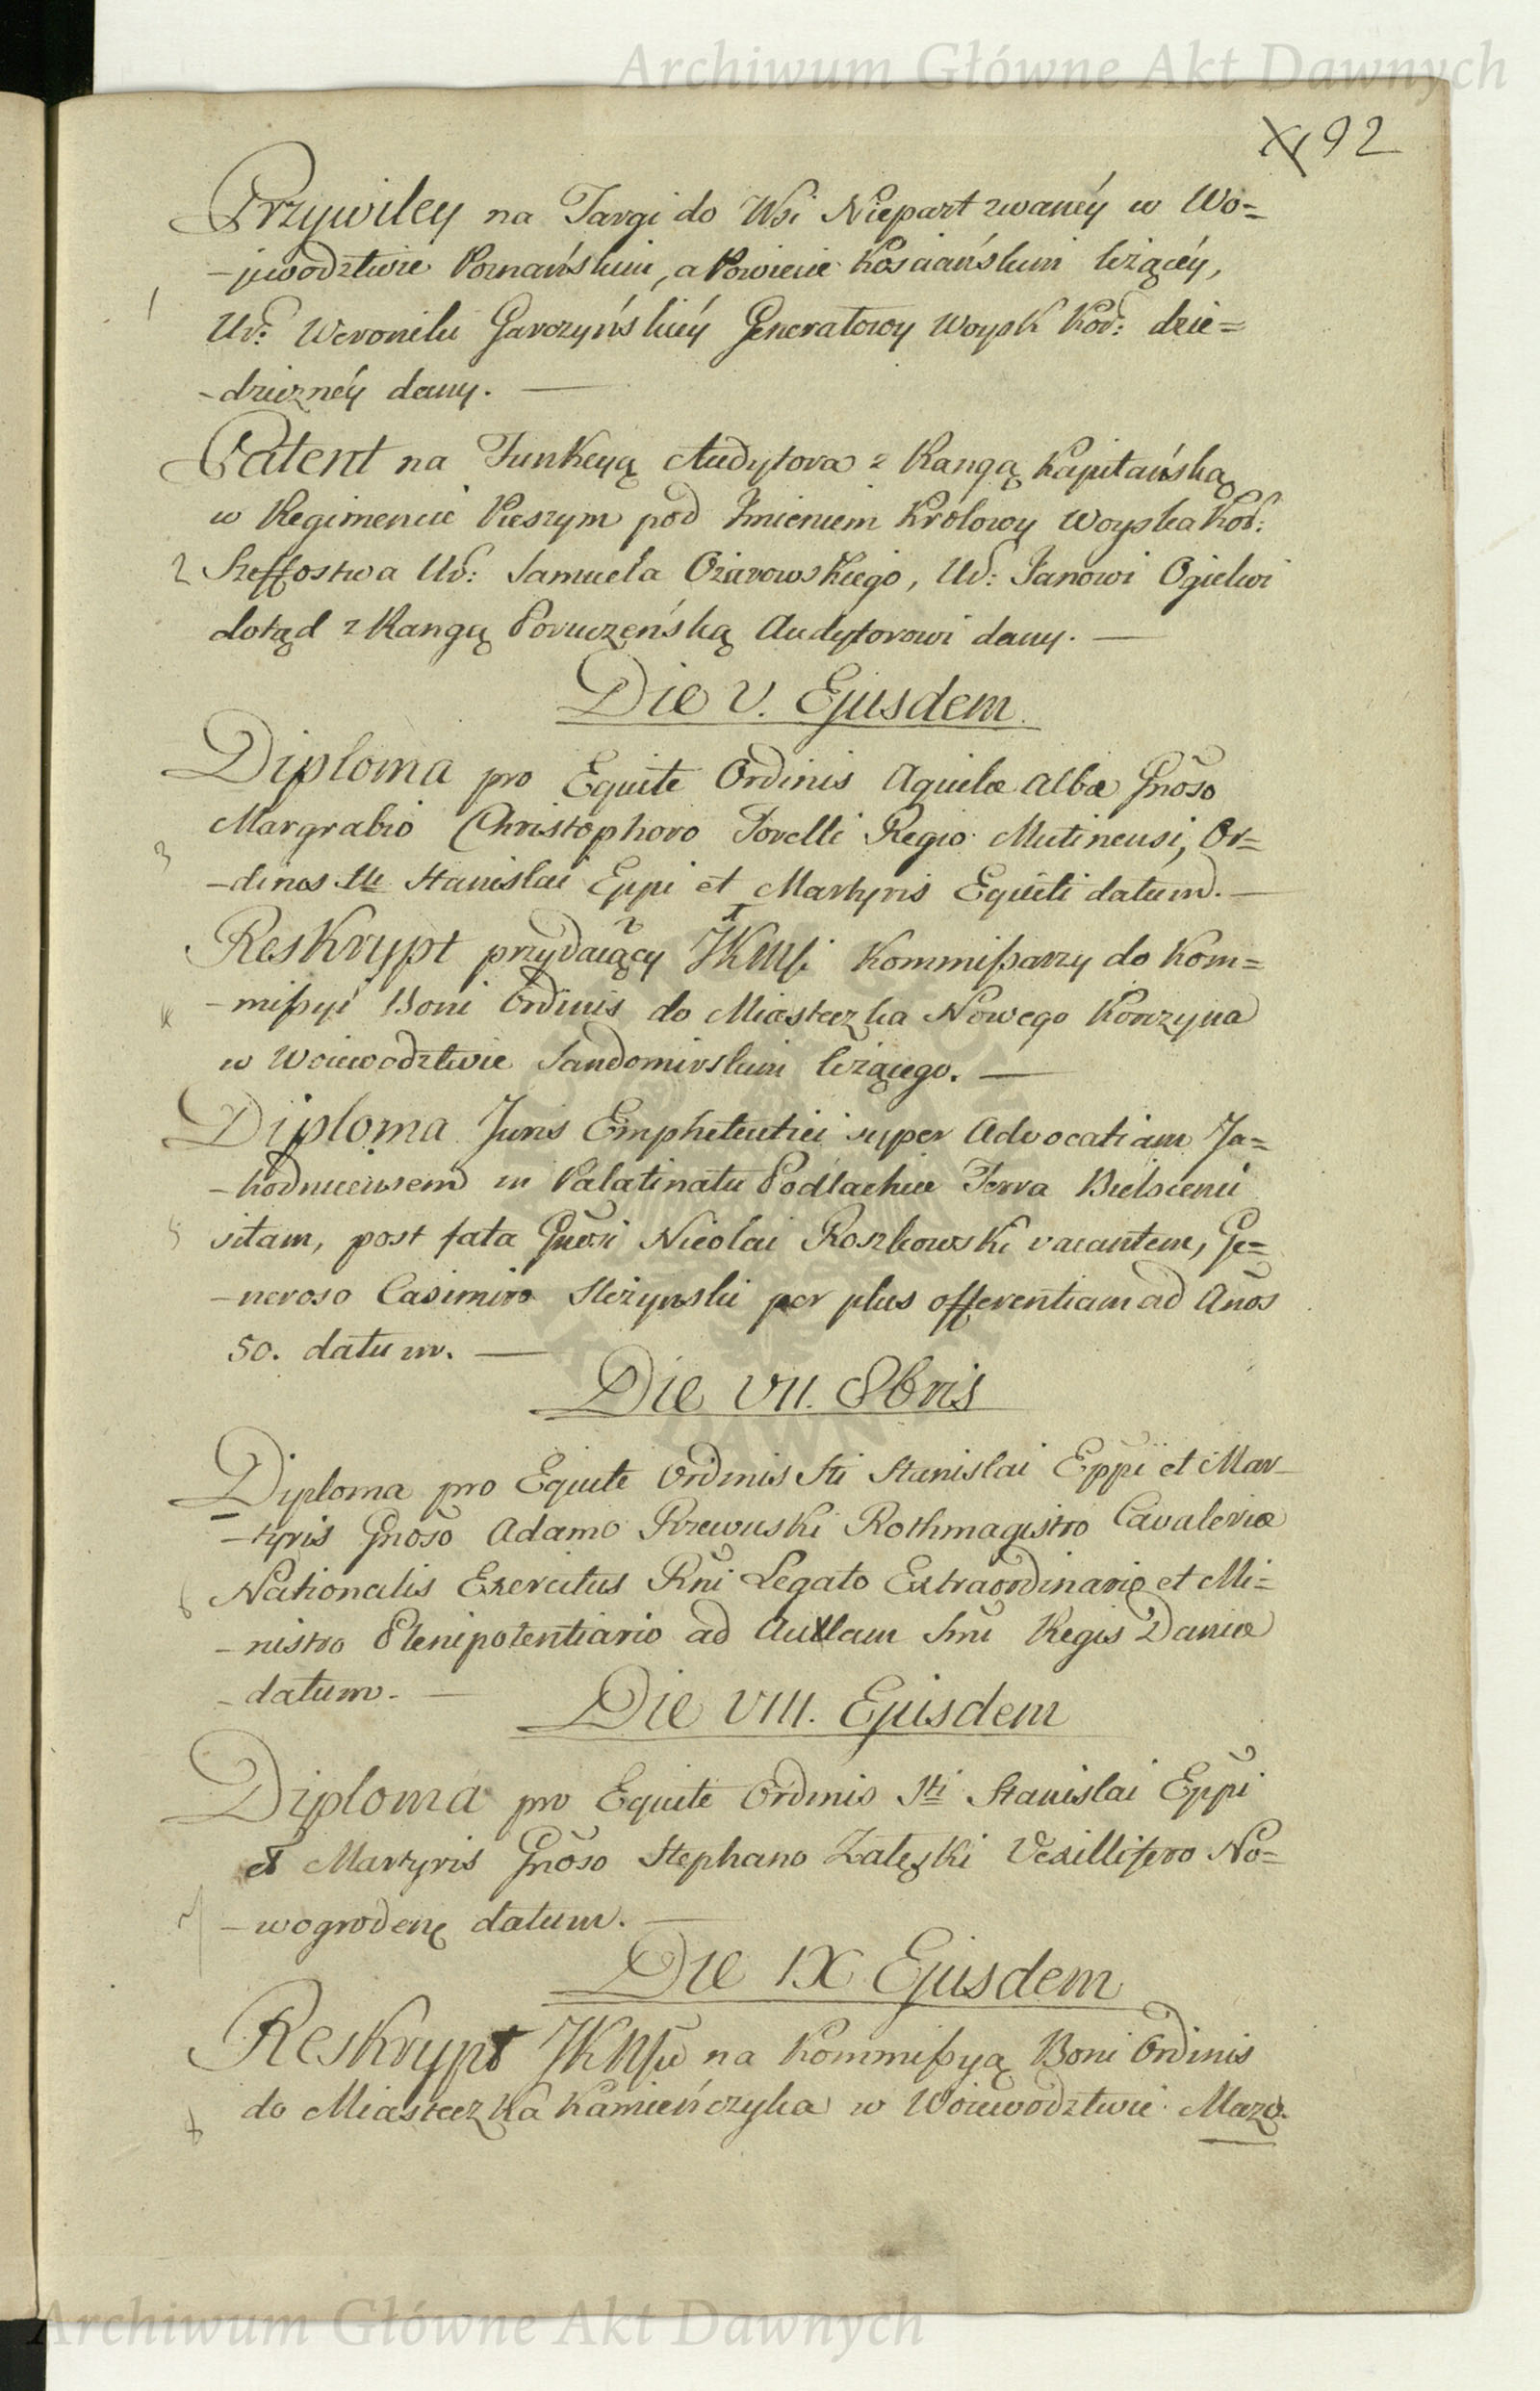 Archiwum Główne Akt Dawnych
92
Przywiley na Targi do Wsi Niepart zwanéy w Wo=
-jewodztwie Poznańskim, a Powiecie Kościańskim leżącéy,
1
Ur: Weronilu Garczyńskiéy Generałowy Woysk Kor: dzie=
-dzicznéy dany. —
Patent na Funkcyą Audytora z Rangą Kapitańską
w Regimencie Pieszym pod Imieniem Królowy Woyska Kor:
2 Szeffostwa Ur: Samuela Ożarowskiego, Ur: Janowi Ogielwi
dotąd z Rangą Poruczeńską Audytorowi dany. —
Die V. Ejusdem.
Diploma pro Equite Ordinis Aquilæ Albæ Gnõso
Margrabio Christophoro Torelli Regio Mutinensi, Or=
3
-dinis Sti Stanislai Eppi et Martyris Equiti datum. —
Reskrypt przydaiący JKMsci Kommißarzy do Kom=
4
-mißyi Boni Ordinis do Miasteczka Nowego Korczyna
w Woiewodztwie Sandomirskim leżącego. —
Diploma Juris Emphiteutici super Advocatiam Ja=
-kodnicensem in Palatinatu Podlachiæ Terra Bielscensi
5 sitam, post fata Gnõsi Nicolai Roszkowski vacantem, Ge=
-neroso Casimiro Steżynski per plus offerentiam ad Anõs
50. datum. —
Die VII. 8bris
Diploma pro Equite Ordinis Sti Stanislai Eppi et Mar-
-tyris Gnõso Adamo Rzewuski Rothmagistro Cavaleriæ
6 Nationalis Exercitus Rni Legato Extraordinario et Mi=
-nistro Plenipotentiario ad Aulam Smi Regis Daniæ
-datum. —
Die VIII. Ejusdem
Diploma pro Equite Ordinis Sti Stanislai Eppi
et Martyris Gnõso Stephano Zaleski Vexillifero No=
7 -wogroden datum. —
Die IX Ejusdem
Reskrypt JKMsci na Kommißyą Boni Ordinis
8 do Miasteczka Kamieńczyka w Woiewodztwie Mazo.
Archiwum Główne Akt Dawnych